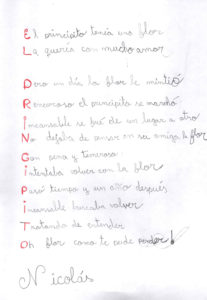 El principito tenía una flor
La quería con mucho amor
Pero un día la flor le mintió
Rencoroso el principito se marchó
Incansable se fué de un lugar a otro
No dejaba de pensar en su amiga la flor
Con pena y temeroso
Intentaba volver con la flor
Pasó tiempo y un año después
Incansable buscaba volver
Tratando de entender
Oh flor como te pude perder!
Nicolás